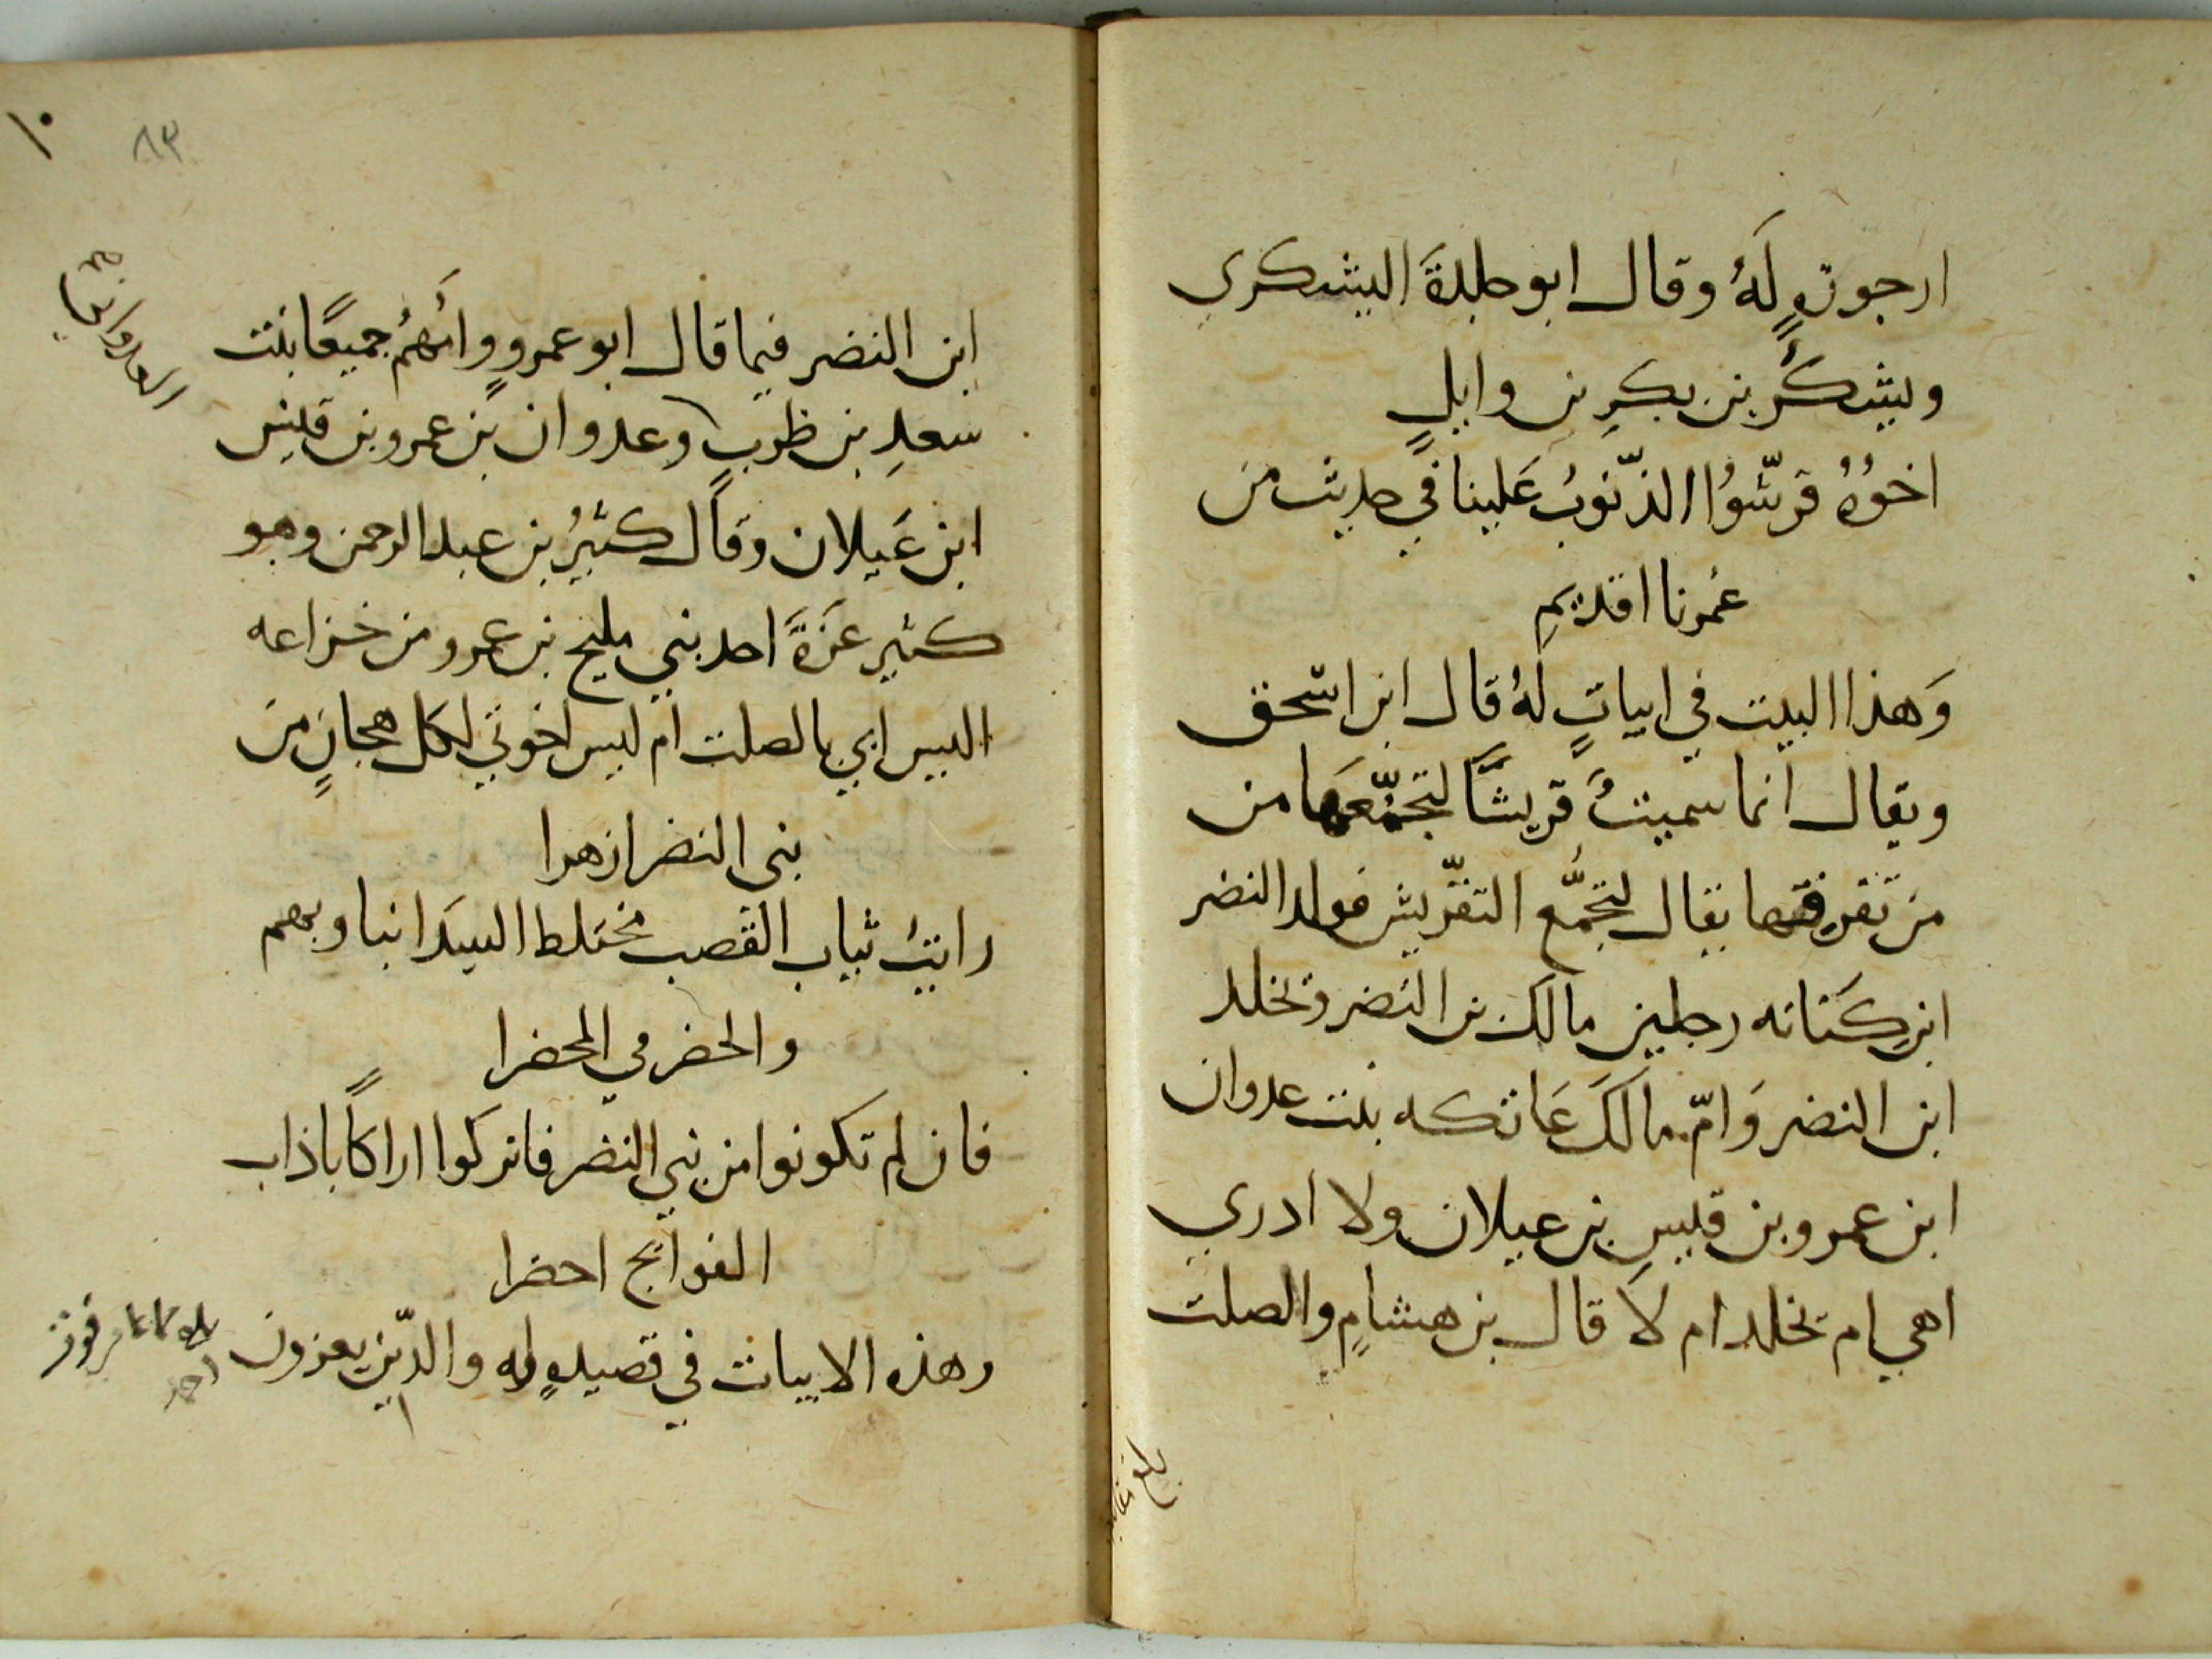 ارجوزةٍ لَهُ وقال ابو جلدةَ اليشكري
ويشكرُ بن بكرِ بن وايلٍ
اخوُهُ قرّشُوا الذّنوبُ عَلينا في حديث من
عُمرنا اقديمِ
وَهذا البيت في ابياتٍ لهُ قال ابن اسحق
ويقال انما سميتُ قريشًا لتجمّعهَا من
من تفرقها يقال لتجمُّع التقرّيش فولد النضر
ابن كنَانه رجلين مالك بن النضر ويخلد
ابن النضر وَامّ مالكَ عَاتكه بنت عدوان
ابن عمرو بن قيسِ بن عيلان ولا ادري
اهي ام يخلد ام لا قال بن هشامٍ والصلت
بلغ
١٠
٨٣
ابن النضر فيما قال ابو عمرو وامُهمُ جميعًا بنت
سعدِ بن ظربٍ وعدوان بن عمرو بن قيس
العدواني
ابن عَيلان وقال كثيرُ بن عبد الرحمن وهو
كثير عَزةَ احد بني مليح بن عمرو من خزاعه
اليس ابي بالصلت ام ليس اخوتي لكل هجانٍ من
بني النضر ازهرا
رايتُ ثياب القصب مختلط السيدَا نبا وبهم
والحضرمي المحضرا
فان لم تكونوا من بني النضر فاتركوا اراكًا باذاب
الفوايج احضرا
وهذه الابيات في قصيدهٍ له والذّين يعزون